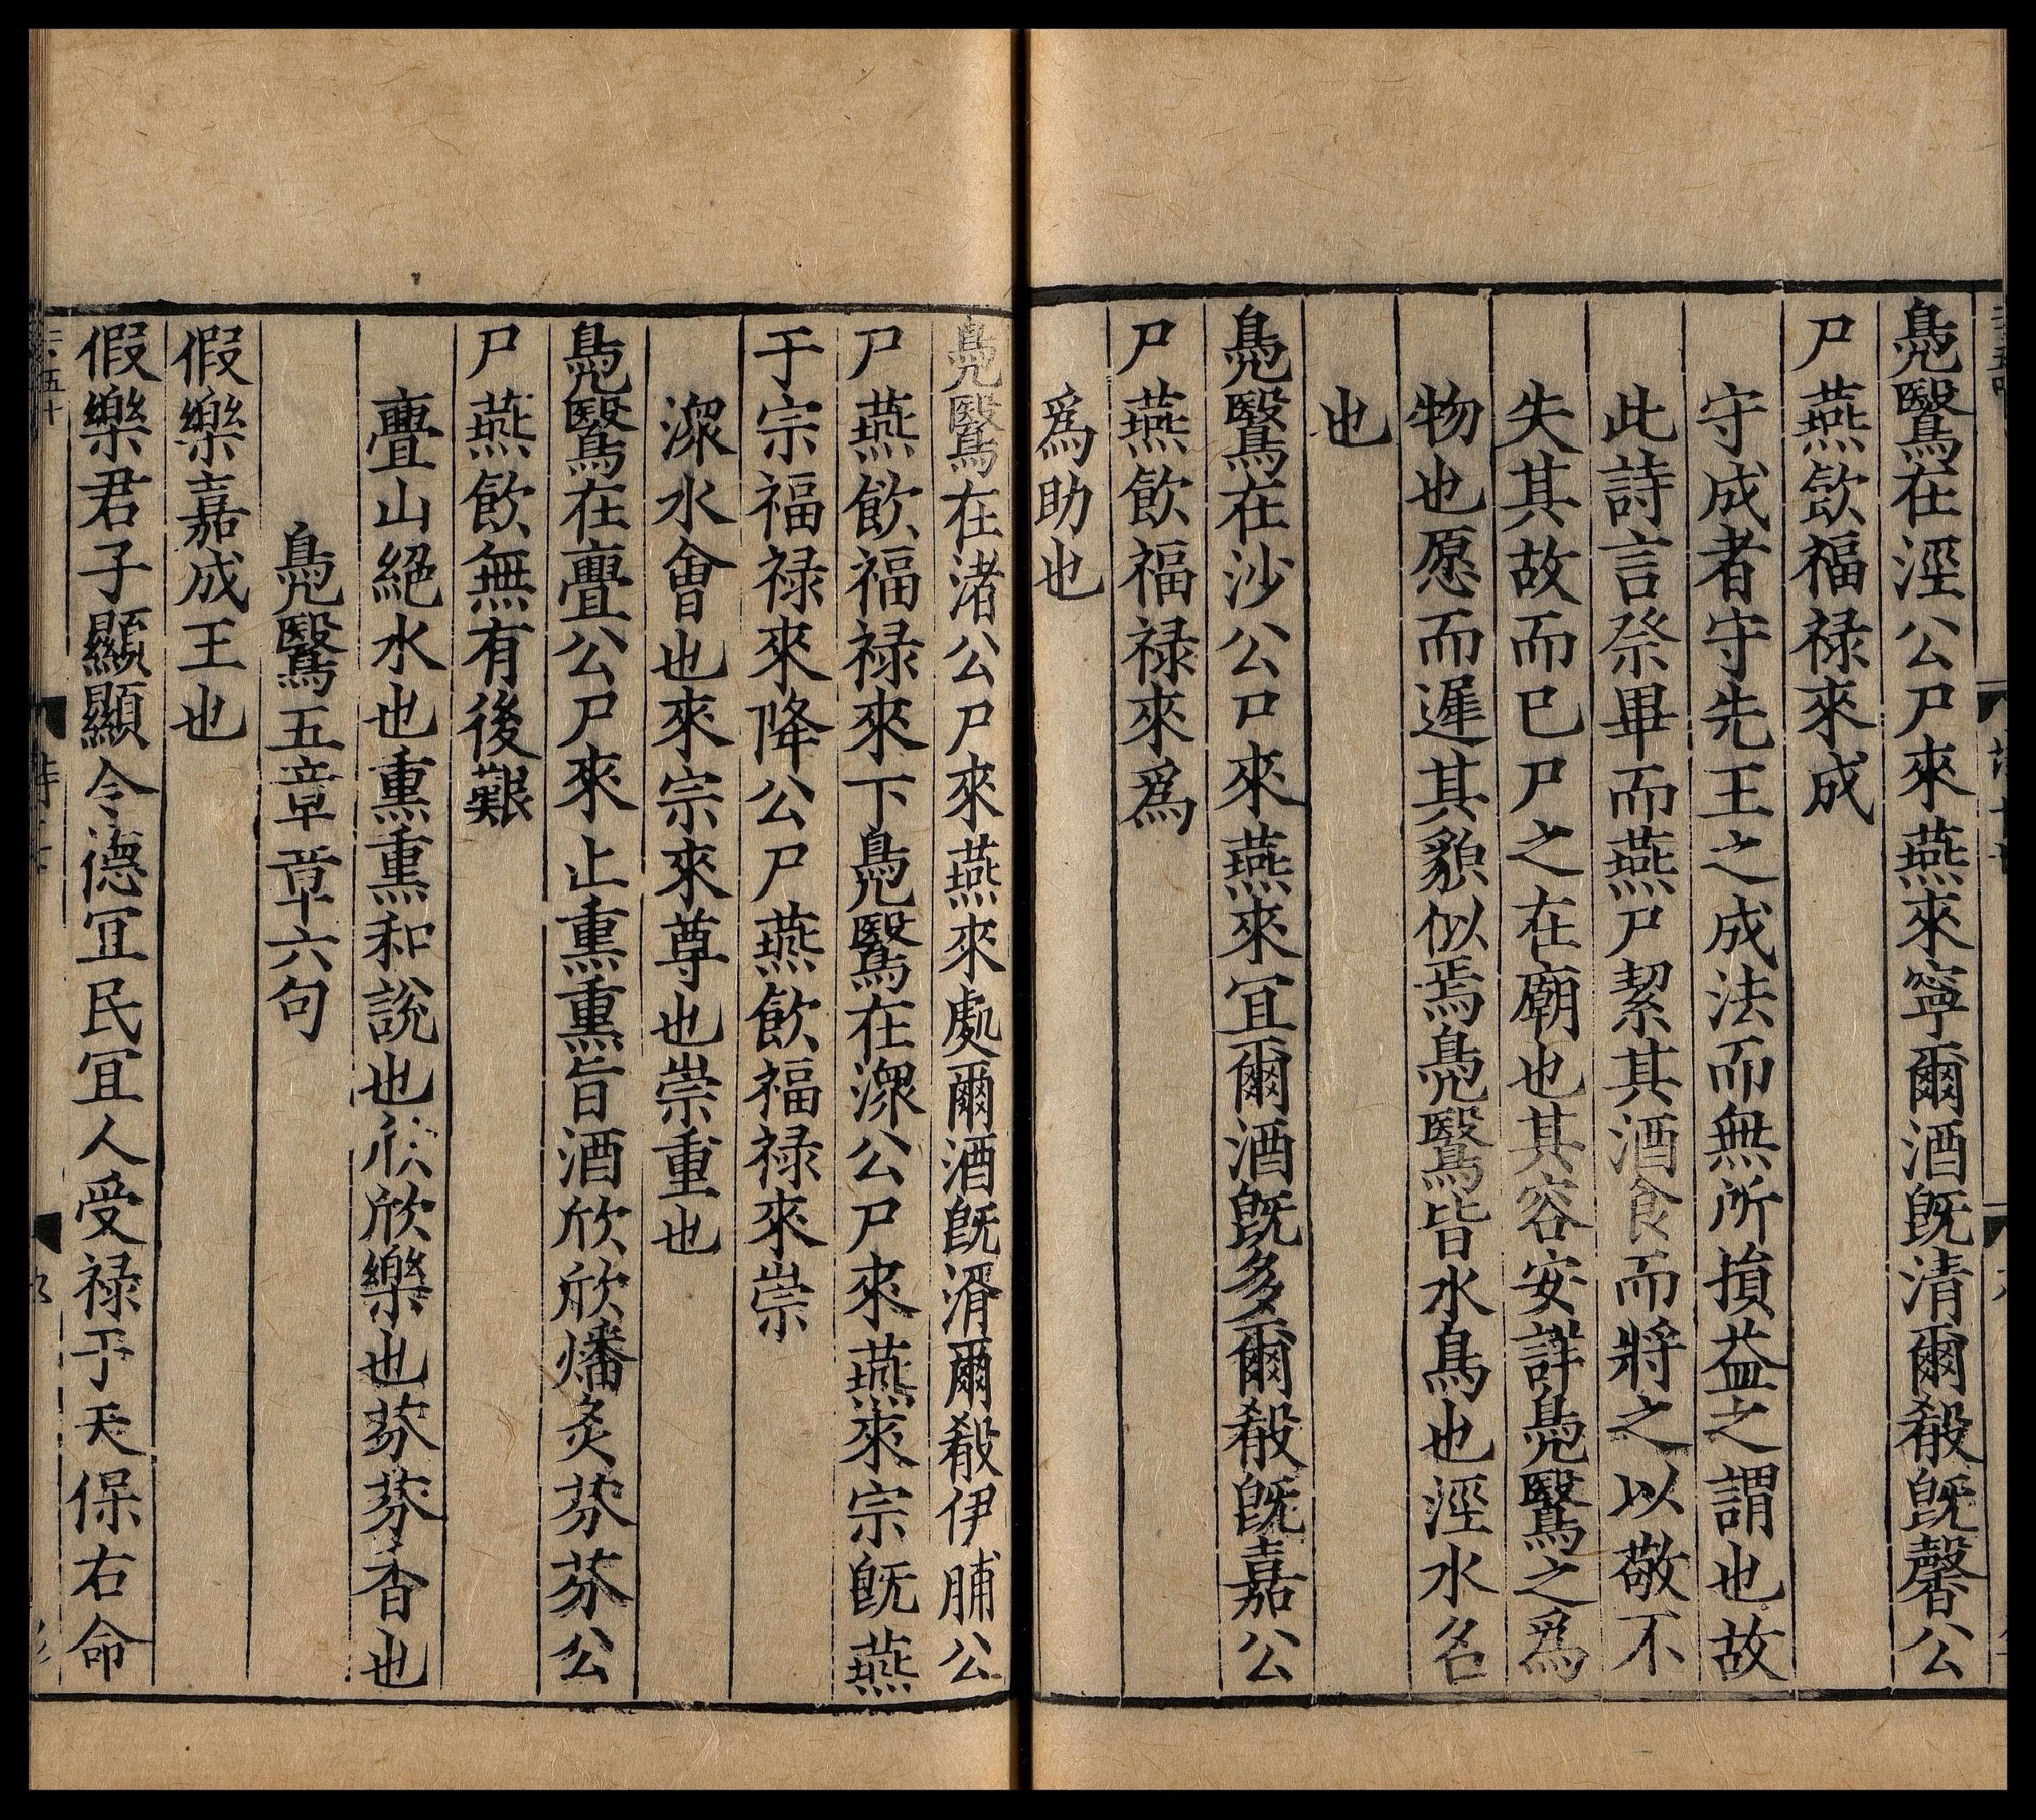 鳧鷖在涇公尸來燕來寧爾酒旣清爾殽旣馨公
尸燕飲福祿來成
守成者守先王之成法而無所損益之謂也故
此詩言祭畢而燕尸絜其酒食而將之以敬不
失其故而已尸之在廟也其容安詳鳧鷖之爲
物也愿而遲其貌似焉鳧鷖皆水鳥也涇水名
也
鳧鷖在沙公尸來燕來宜爾酒旣多爾殽旣嘉公
尸燕飲福祿來爲
爲助也
鳧鷖在渚公尸來燕來處爾酒旣湑爾殽伊脯公
尸燕飲福祿來下鳧鷖在潀公尸來燕來宗旣燕
于宗福祿來降公尸燕飲福祿來崇
潀水會也來宗來尊也崇重也
鳧鷖在亹公尸來止熏熏旨酒欣欣燔炙芬芬公
尸燕飲無有後艱
亹山絕水也熏熏和說也欣欣樂也芬芬香也
鳧鷖五章章六句
假樂嘉成王也
假樂君子顯顯令德宜民宜人受祿于天保右命